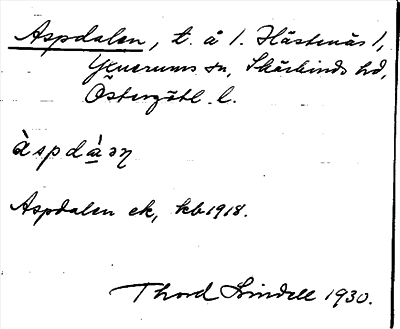 Aspdalen, t. å 1. Hästenäs 1,
Yxnerums sn, Skärkinds hd,
Östergötl. l.
àspdàəη
Aspdalen ek, kb 1918.
Thord Lindell 1930.